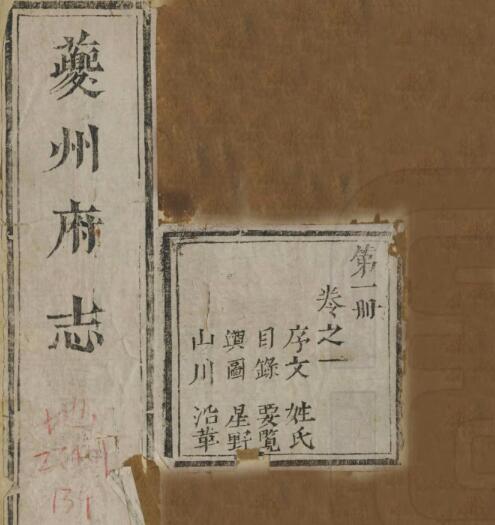 夔州府志
第一册
卷之一
序文 姓氏
目錄 要覽
輿圖 星野
山川 沿革
地